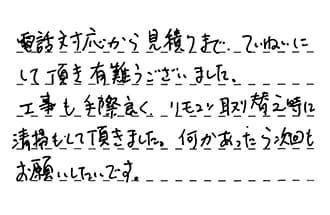 電話対応から見積りまで、ていねいに
して頂き有難うございました。
工事も手際良く、リモコン取り替え時に
清掃もして頂きました。何かあったら次回も
お願いしたいです。